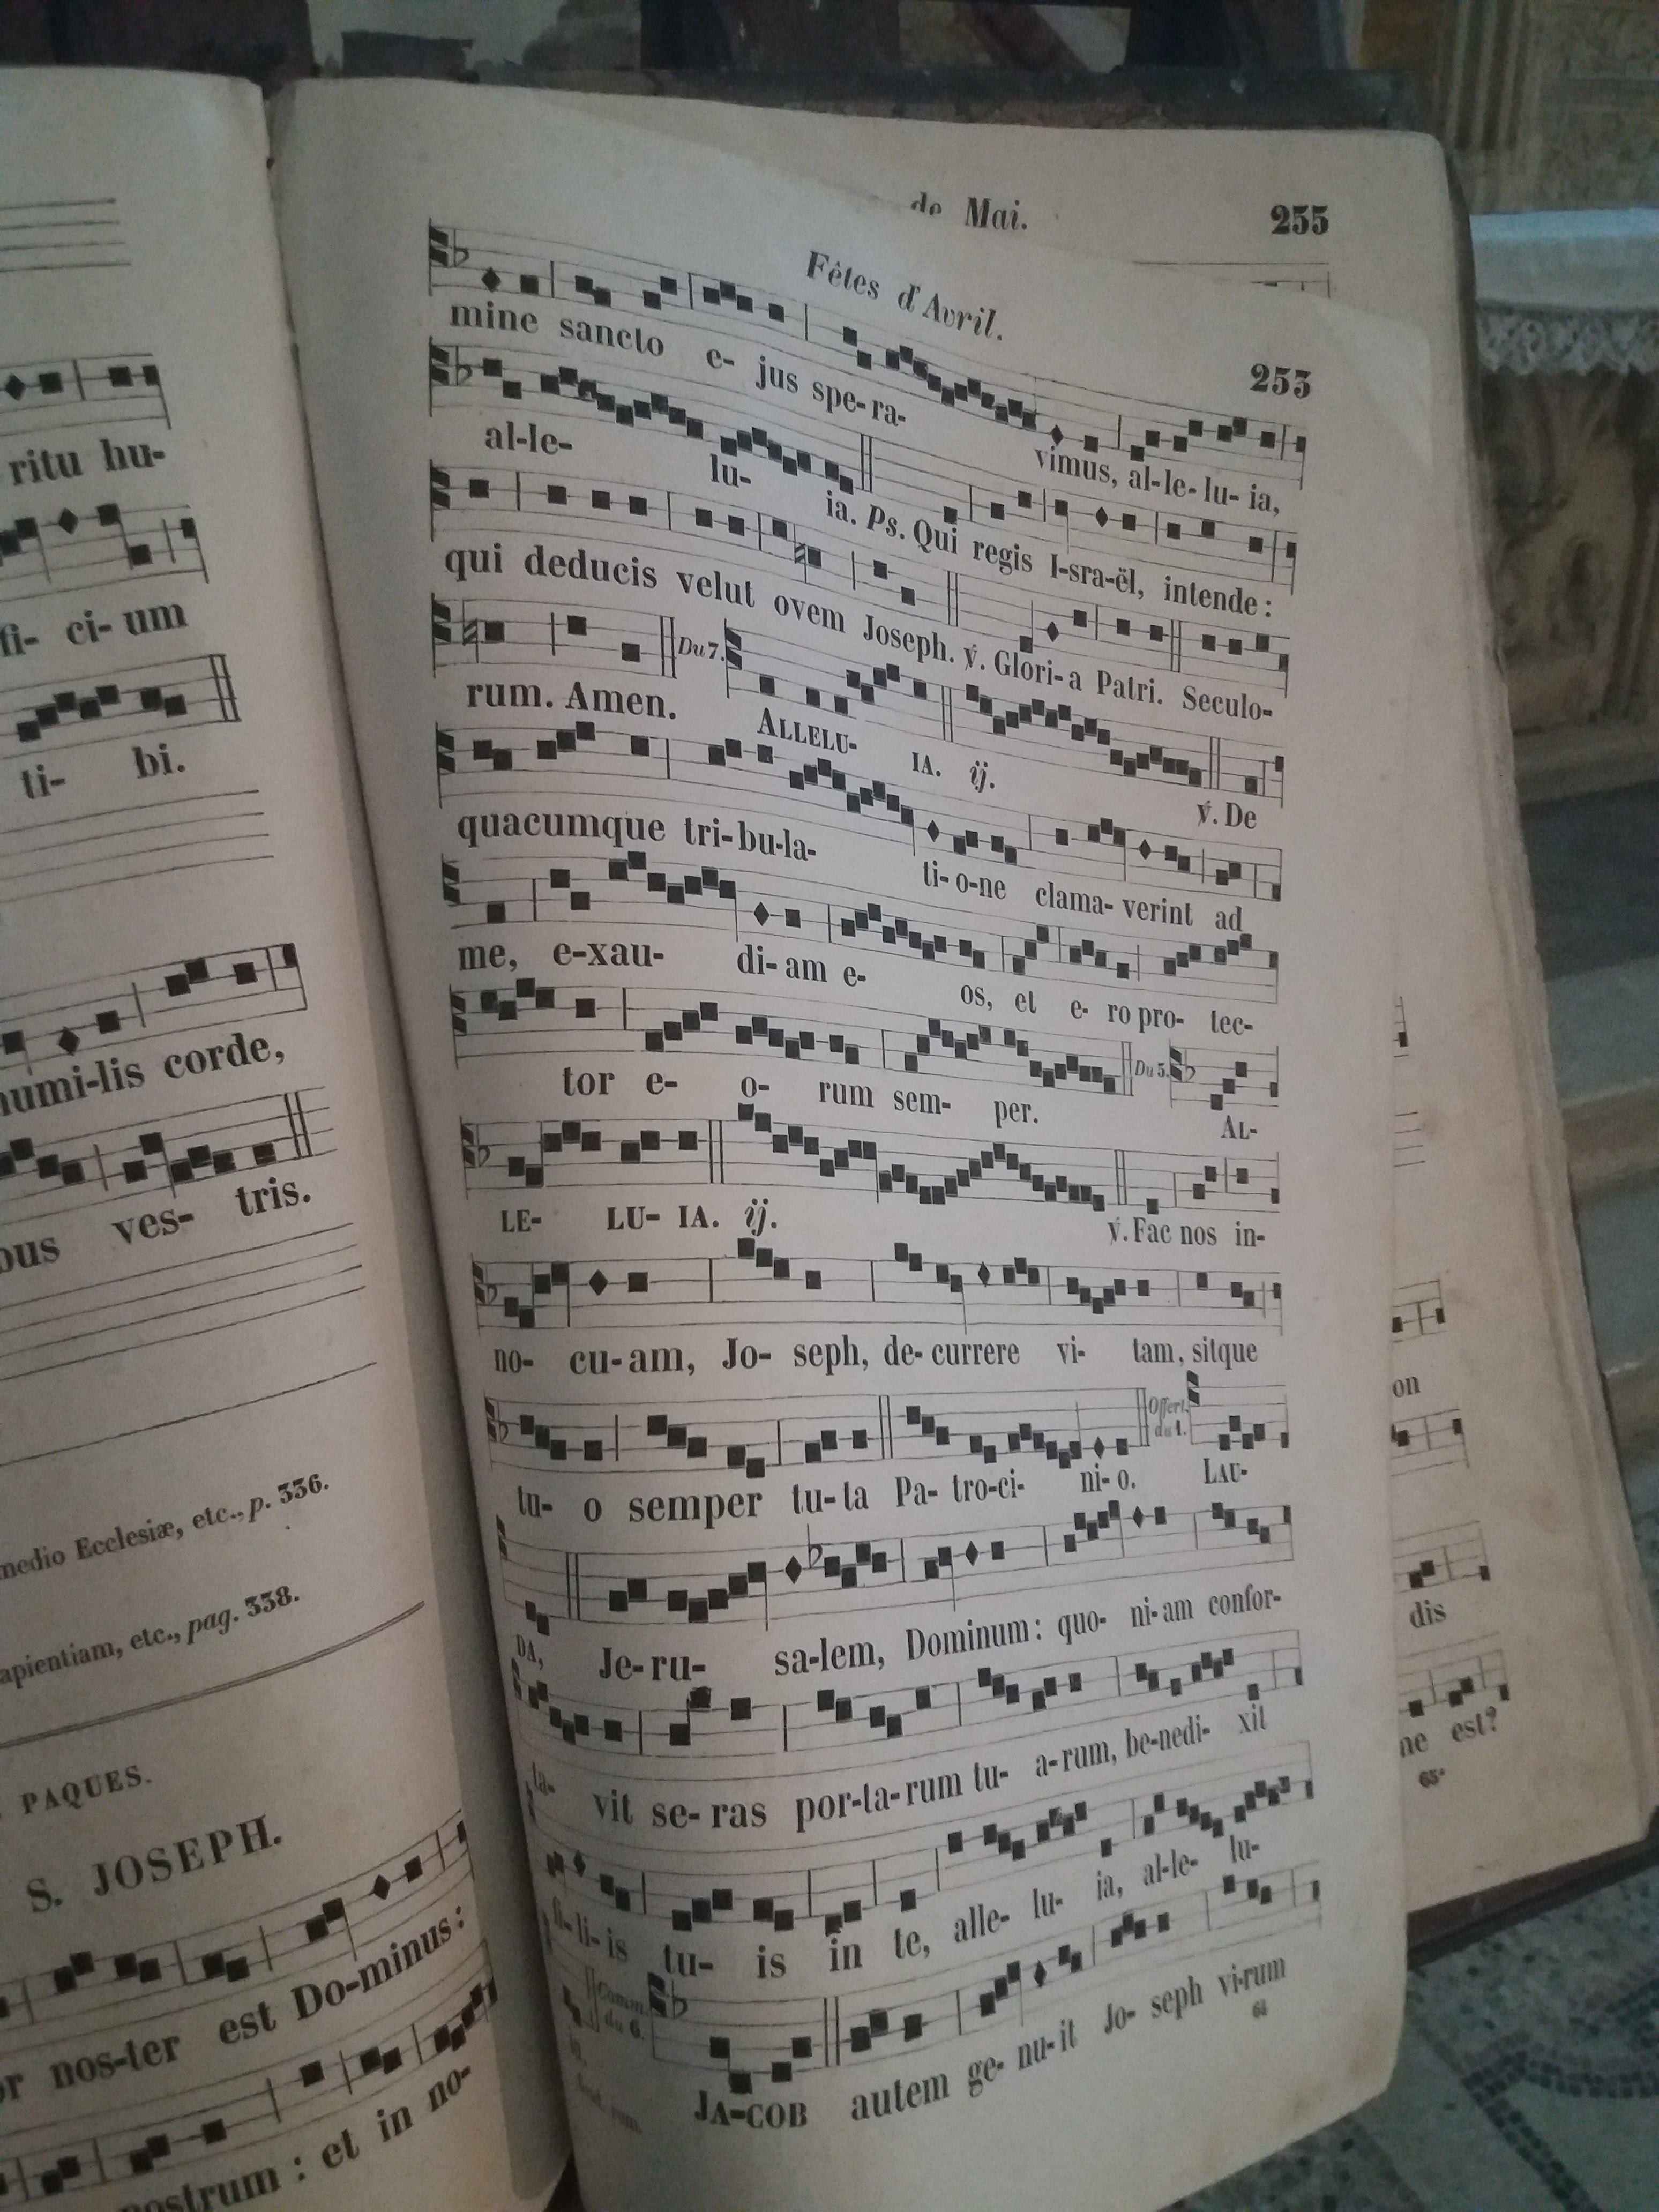 ritu hu-
fi- ci-um
ti- bi.
humi-lis corde,
ves- tris.
medio Ecclesiæ, etc., p. 336.
apientiam, etc., pag. 338.
PAQUES.
S. JOSEPH.
nos-ter est Do-minus:
nostrum: et in no-
de Mai.
255
Fêtes d'Avril.
253
mine sancto e- jus spe-ra- vimus, al-le-lu-ia,
al-le- lu- ia. Ps. Qui regis I-sra-ël, intende:
qui deducis velut ovem Joseph. ℣. Glori-a Patri. Seculo-
Du 7.
rum. Amen. ALLELU- IA. ij. ℣. De
quacumque tri-bu-la- ti-o-ne clama-verint ad
me, e-xau- di-am e- os, et e- ro pro- tec-
Du 5.
tor e- o- rum sem- per. AL-
LE- LU- IA. ij. ℣. Fac nos in-
no- cu-am, Jo- seph, de-currere vi- tam, sitque
Offert. du 1.
tu- o semper tu-ta Pa-tro-ci- ni-o. LAU-
DA, Je-ru- sa-lem, Dominum: quo- ni-am confor-
ta- vit se-ras por-ta-rum tu- a-rum, be-nedi- xit
fi-li-is tu- is in te, alle- lu- ia, al-le- lu-
Comm. du 6.
JA-COB autem ge- nu-it Jo- seph vi-rum
64
on
dis
ne est?
65*